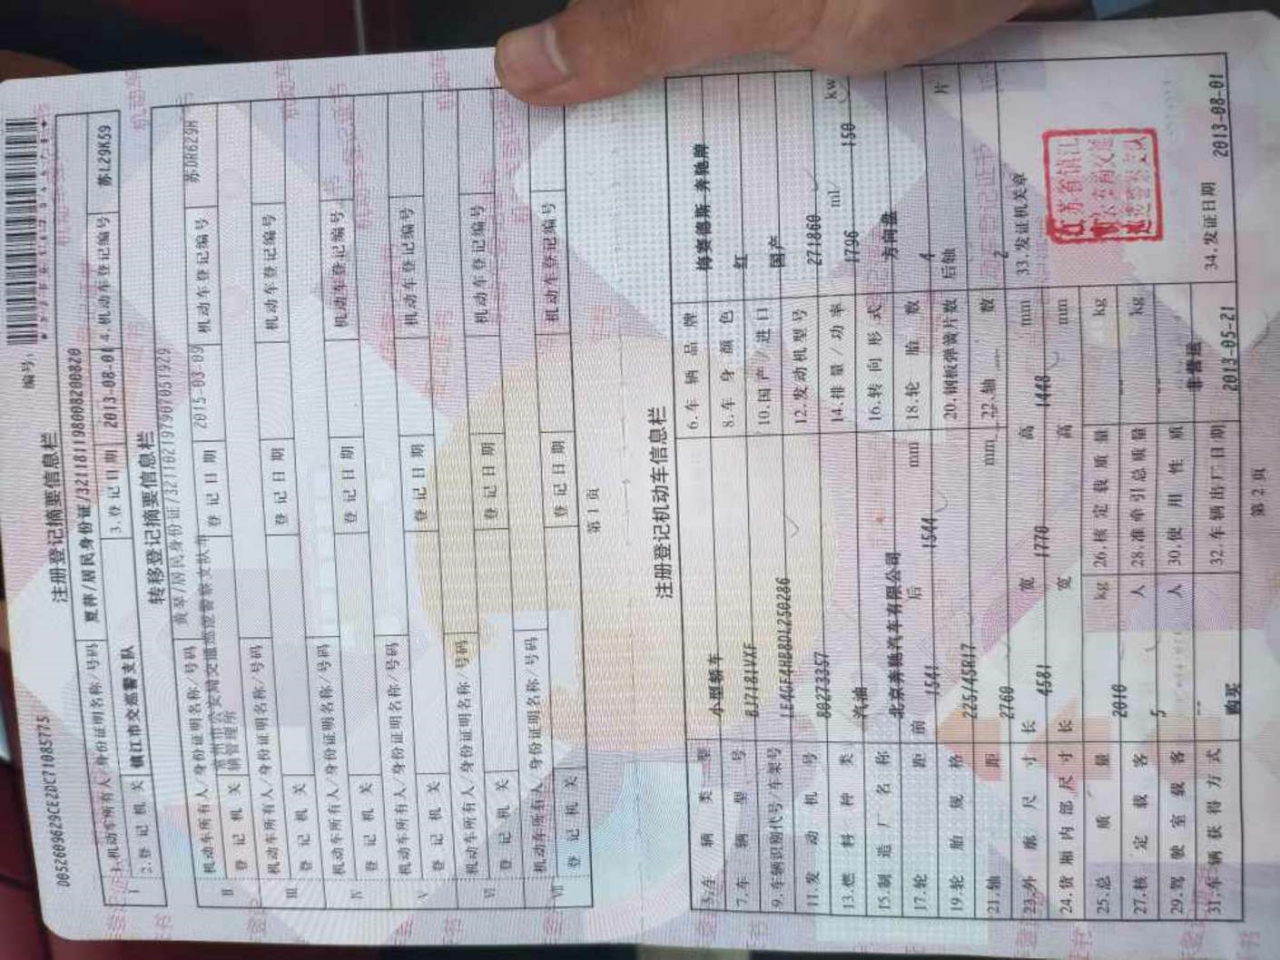 编号：
D052609629CE2DC71085775
注册登记摘要信息栏
I 1.机动车所有人/身份证明名称/号码 夏萍/居民身份证/321181198008200820
2.登记机关 镇江市交巡警支队 3.登记日期 2013-08-01 4.机动车登记编号 苏L29K59
转移登记摘要信息栏
II 机动车所有人/身份证明名称/号码 黄琴/居民身份证/321102197907051929
登记机关 常州市公安局交通巡逻警察支队车辆管理所 登记日期 2015-03-09 机动车登记编号 苏DR629H
III 机动车所有人/身份证明名称/号码
登记机关 登记日期 机动车登记编号
IV 机动车所有人/身份证明名称/号码
登记机关 登记日期 机动车登记编号
V 机动车所有人/身份证明名称/号码
登记机关 登记日期 机动车登记编号
VI 机动车所有人/身份证明名称/号码
登记机关 登记日期 机动车登记编号
VII 机动车所有人/身份证明名称/号码
登记机关 登记日期 机动车登记编号
第1页
注册登记机动车信息栏
5.车辆类型 小型轿车 6.车辆品牌 梅赛德斯 奔驰牌
7.车辆型号 BJ7181VXF 8.车身颜色 红
9.车辆识别代号/车架号 LE4GF4HB8DL250286 10.国产/进口 国产
11.发动机号 80273357 12.发动机型号 271860
13.燃料种类 汽油 14.排量/功率 1796 ml/ 150 kw
15.制造厂名称 北京奔驰汽车有限公司 16.转向形式 方向盘
17.轮距 前 1541 后 1544 mm 18.轮胎数 4
19.轮胎规格 225/45R17 20.钢板弹簧片数 后轴 片
21.轴距 2760 mm 22.轴数 2
23.外廓尺寸 长 4581 宽 1770 高 1448 mm 33.发证机关章
24.货厢内部尺寸 长 宽 高 mm
25.总质量 2010 kg 26.核定载质量 kg
27.核定载客 5 人 28.准牵引总质量 kg
29.驾驶室载客 -- 人 30.使用性质 非营运
31.车辆获得方式 购买 32.车辆出厂日期 2013-05-21 34.发证日期 2013-08-01
第2页